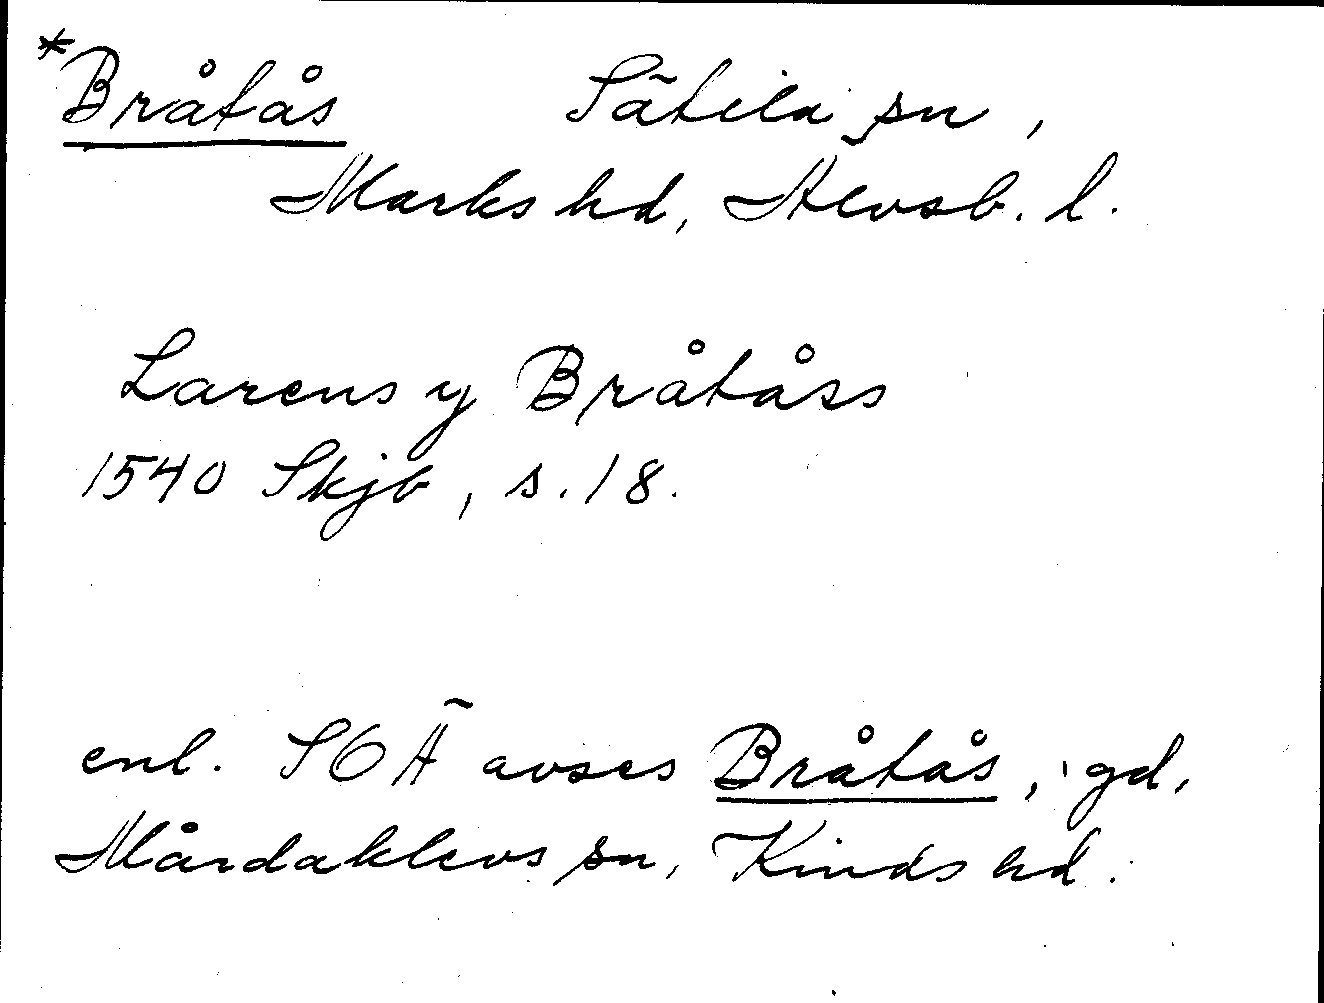 *Bråtås Sätila sn,
Marks hd, Älvsb. l.
Larens y Bråtåss
1540 Skjb, s. 18.
enl. SOÄ avses Bråtås, gd,
Mårdaklevs sn, Kinds hd.